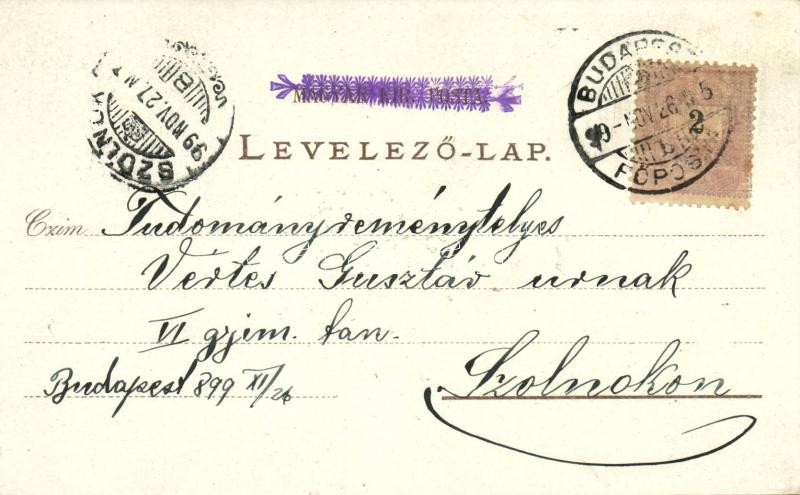 MAGYAR KIR. POSTA.
LEVELEZŐ-LAP.
BUDAPEST
99 NOV. 26
FŐPOSTA
2
SZOLNOK
99 NOV. 27
Czim Tudományreménytelyes
Vértes Gusztáv urnak
VI gyim. tan.
Budapest 899 XI/26
Szolnokon